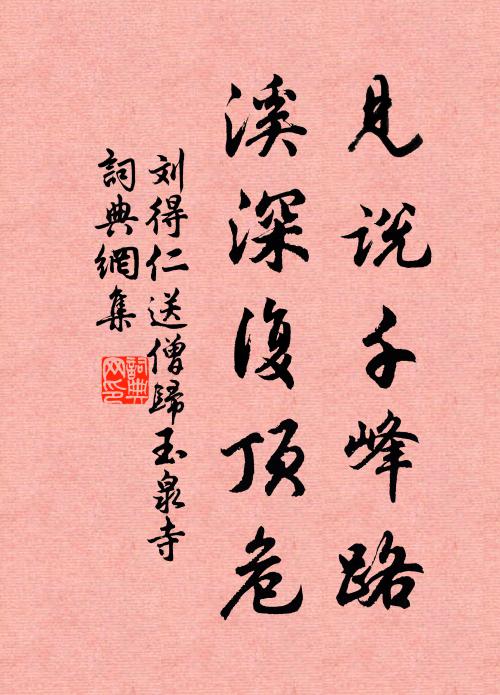 見说千峰路
溪深復顶危
刘得仁送僧歸玉泉寺
詞典網集
詞典
网印